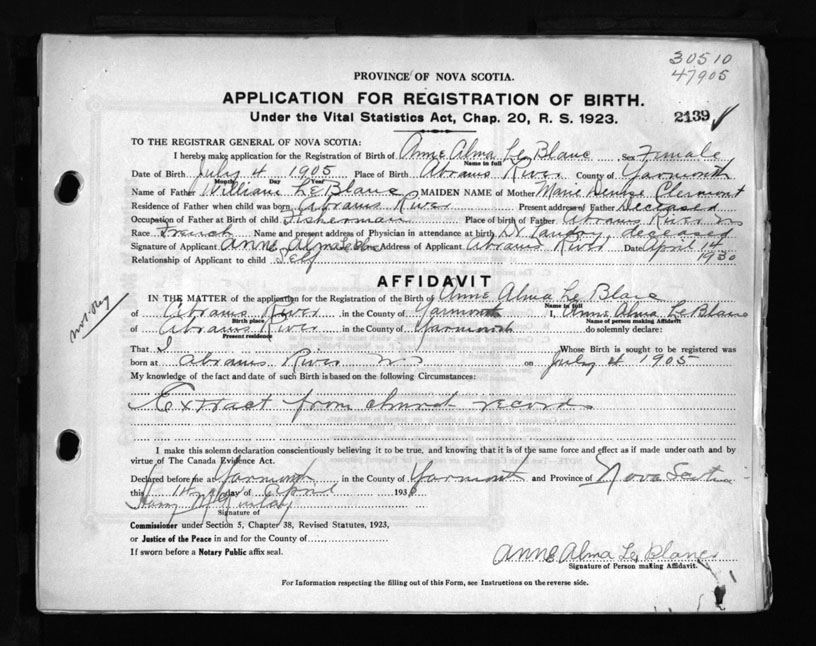 30510
47905
PROVINCE OF NOVA SCOTIA.
APPLICATION FOR REGISTRATION OF BIRTH.
Under the Vital Statistics Act, Chap. 20, R. S. 1923.
2139
TO THE REGISTRAR GENERAL OF NOVA SCOTIA:
I hereby make application for the Registration of Birth of Anne Alma Le Blanc Sex Female
Name in full
Date of Birth July 4 1905 Place of Birth Abrams River County of Yarmouth
Month Day Year
Name of Father William Le Blanc MAIDEN NAME of Mother Marie Denise Clermont
Residence of Father when child was born Abrams River Present address of Father Deceased
Occupation of Father at Birth of child Fisherman Place of birth of Father Abrams River N S
Race French Name and present address of Physician in attendance at birth Dr deceased
Signature of Applicant Anne Alma Le Blanc Address of Applicant Abrams River Date April 14
1930
Relationship of Applicant to child Self
AFFIDAVIT
IN THE MATTER of the application for the Registration of the Birth of Anne Alma Le Blanc
Name in full
of Abrams River in the County of Yarmouth I, Anne Alma Le Blanc
Birth place Name of person making Affidavit
of Abrams River in the County of Yarmouth do solemnly declare:
Present residence
That I Whose Birth is sought to be registered was
born at Abrams River N S on July 4 1905
My knowledge of the fact and date of such Birth is based on the following Circumstances:
Extract from church records
I make this solemn declaration conscientiously believing it to be true, and knowing that it is of the same force and effect as if made under oath and by
virtue of The Canada Evidence Act.
Declared before me at Yarmouth in the County of Yarmouth and Province of Nova Scotia
this 14 day of April 193
Signature of
Commissioner under Section 5, Chapter 38, Revised Statutes, 1923,
or Justice of the Peace in and for the County of
If sworn before a Notary Public affix seal.
Anne Alma Le Blanc
Signature of Person making Affidavit.
For Information respecting the filling out of this Form, see Instructions on the reverse side.